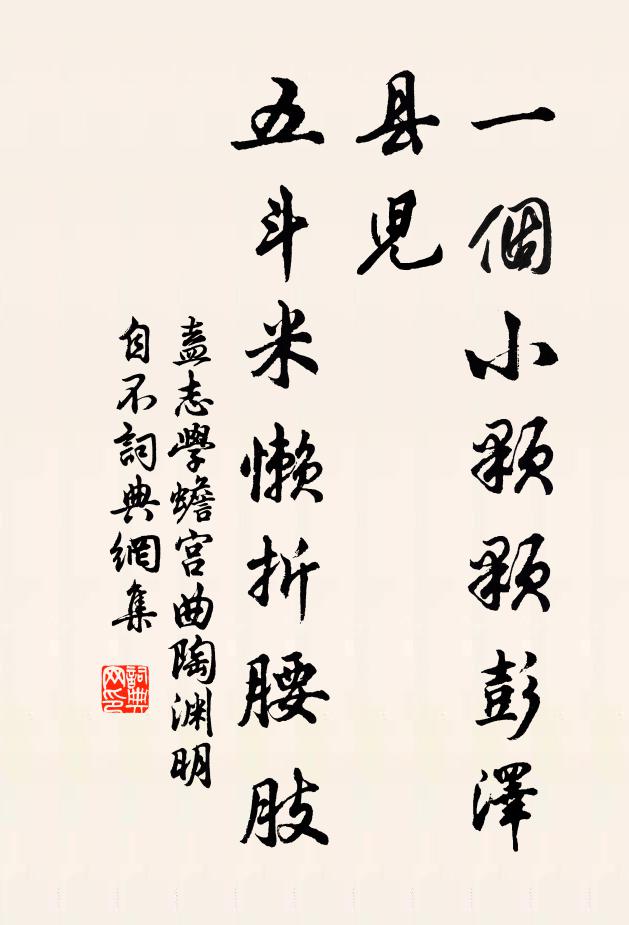 一個小顆顆彭澤
县児
五斗米懒折腰肢
盍志學蟾宫曲陶渊明
自不詞典網集
詞典
网印